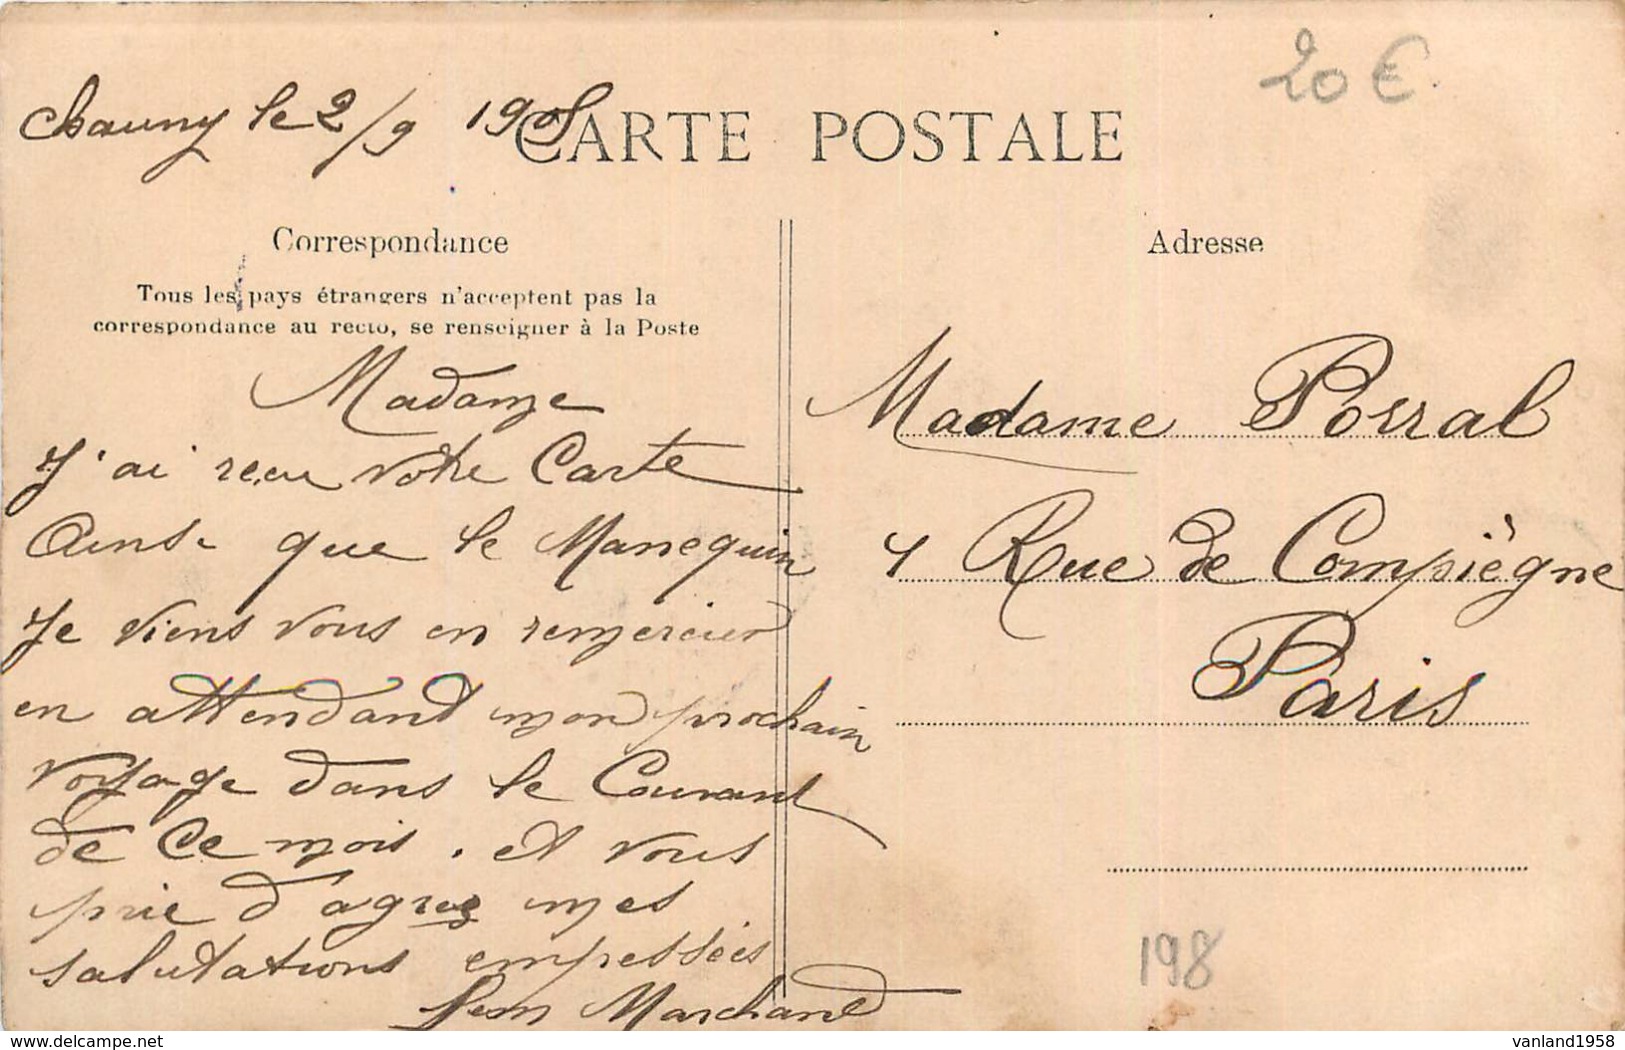 Chauny le 2/9 1905
CARTE POSTALE
20 €
Correspondance
Tous les pays étrangers n'acceptent pas la
correspondance au recto, se renseigner à la Poste
Madame
J'ai reçu votre Carte
Ainsi que le Manequin
Je viens vous en remercier
en attendant mon prochain
voyage dans le Courant
de Ce mois. et vous
prie d'agréez mes
salutations empressées
Léon Marchand
Adresse
Madame Porral
4 Rue de Compiègne
Paris
198
www.delcampe.net
vanland1958